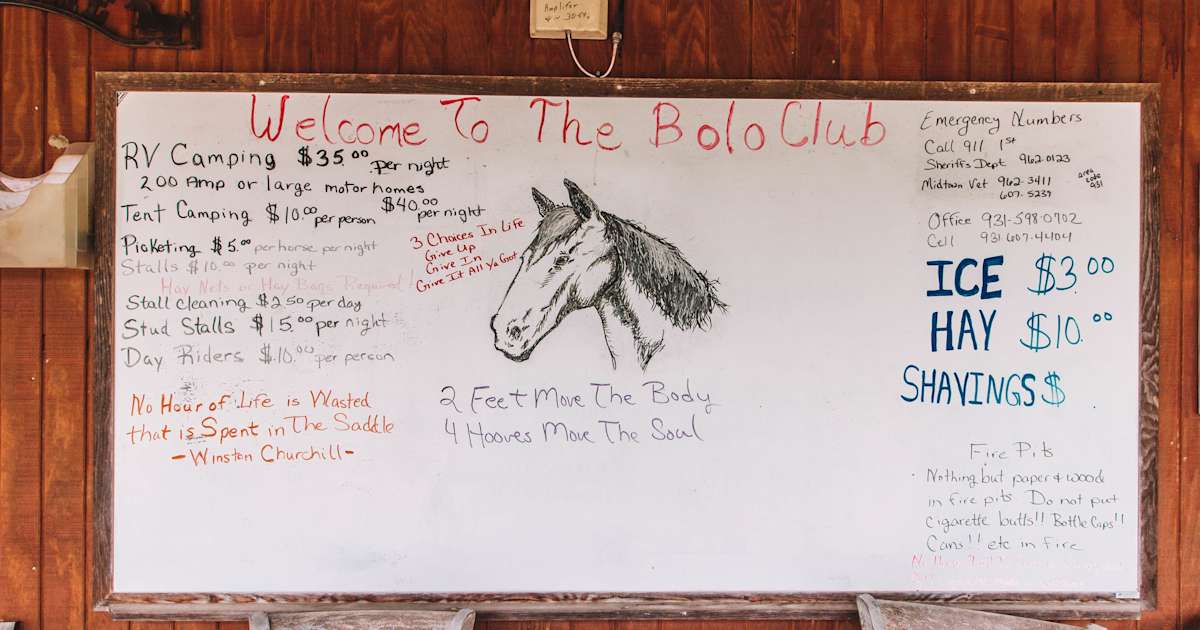 Amplifer
Welcome To The Bolo Club
RV Camping $35.00 per night
200 Amp or large motorhomes
$40.00 per night
Tent Camping $10.00 per person
Picketing $5.00 per horse per night
Stalls $10.00 per night
Hay Nets or Hay Bags Required!
Stall cleaning $2.50 per day
Stud Stalls $15.00 per night
Day Riders $10.00 per person
No Hour of Life is Wasted
that is Spent in The Saddle
-Winston Churchill-
3 Choices In Life
Give Up
Give In
Give It All Ya Got
2 Feet Move The Body
4 Hooves Move The Soul
Emergency Numbers
Call 911 1st
Sheriffs Dept 962-0123
Midtown Vet 962-3411
607-5239
area code 931
Office 931-598-0702
Cell 931-607-4404
ICE $3.00
HAY $10.00
SHAVINGS $
Fire Pits
· Nothing but paper & wood
in fire pits Do not put
cigarette butts!! Bottle Caps!!
Cans!! etc in fire